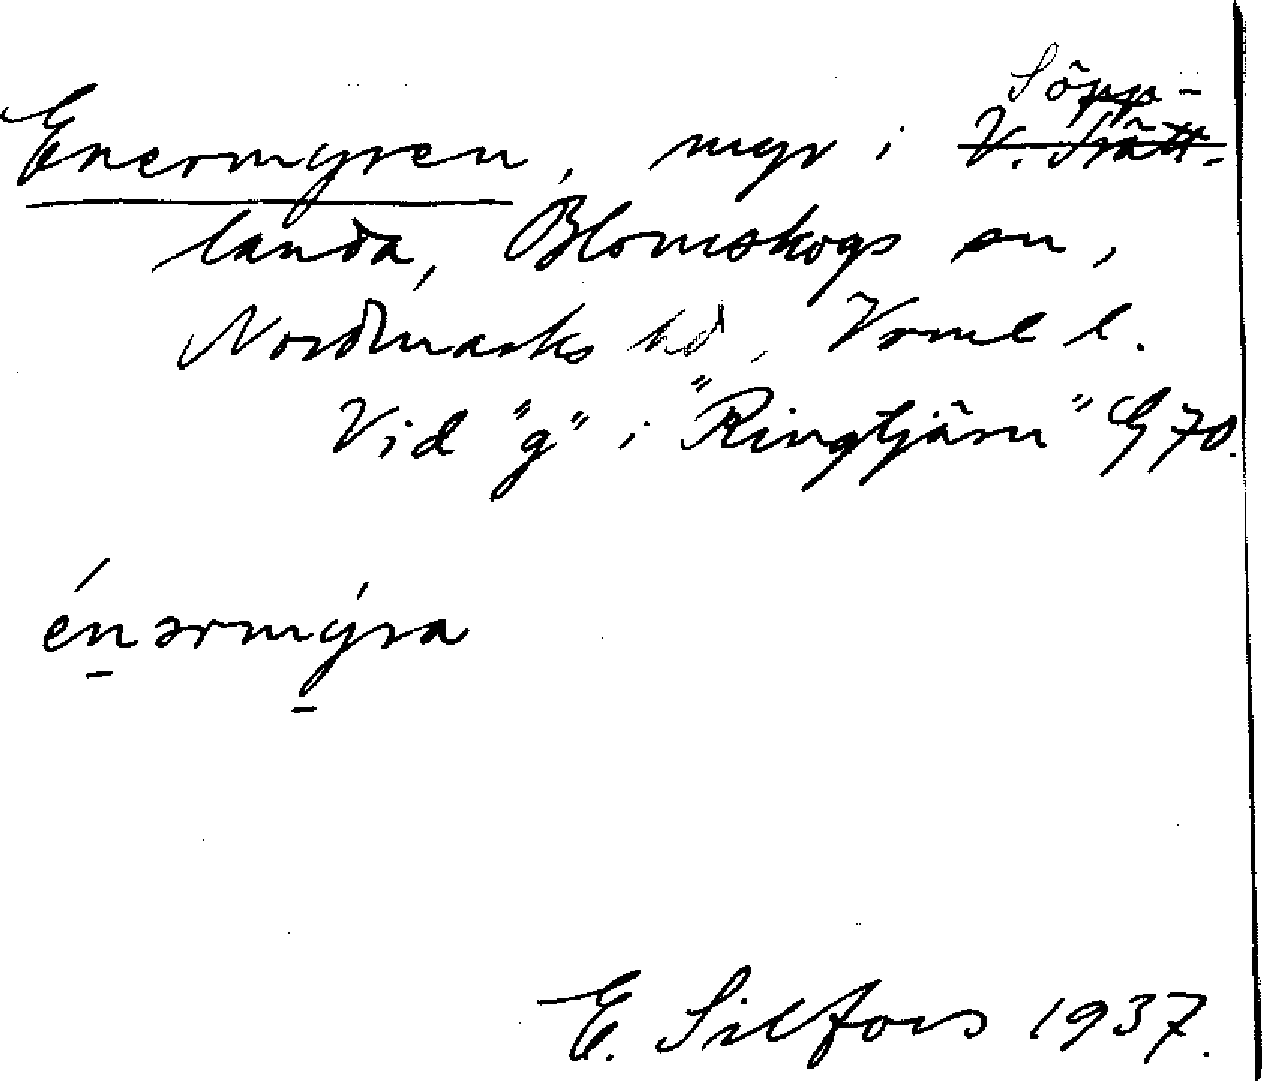 Söpp-
Enermyren, myr i V. Trätt-
landa, Blomskogs sn,
Nordmarks hd, Vrml l.
Vid "g" i "Ringtjärn" G 70.
énərmýra
E. Silfors 1937.